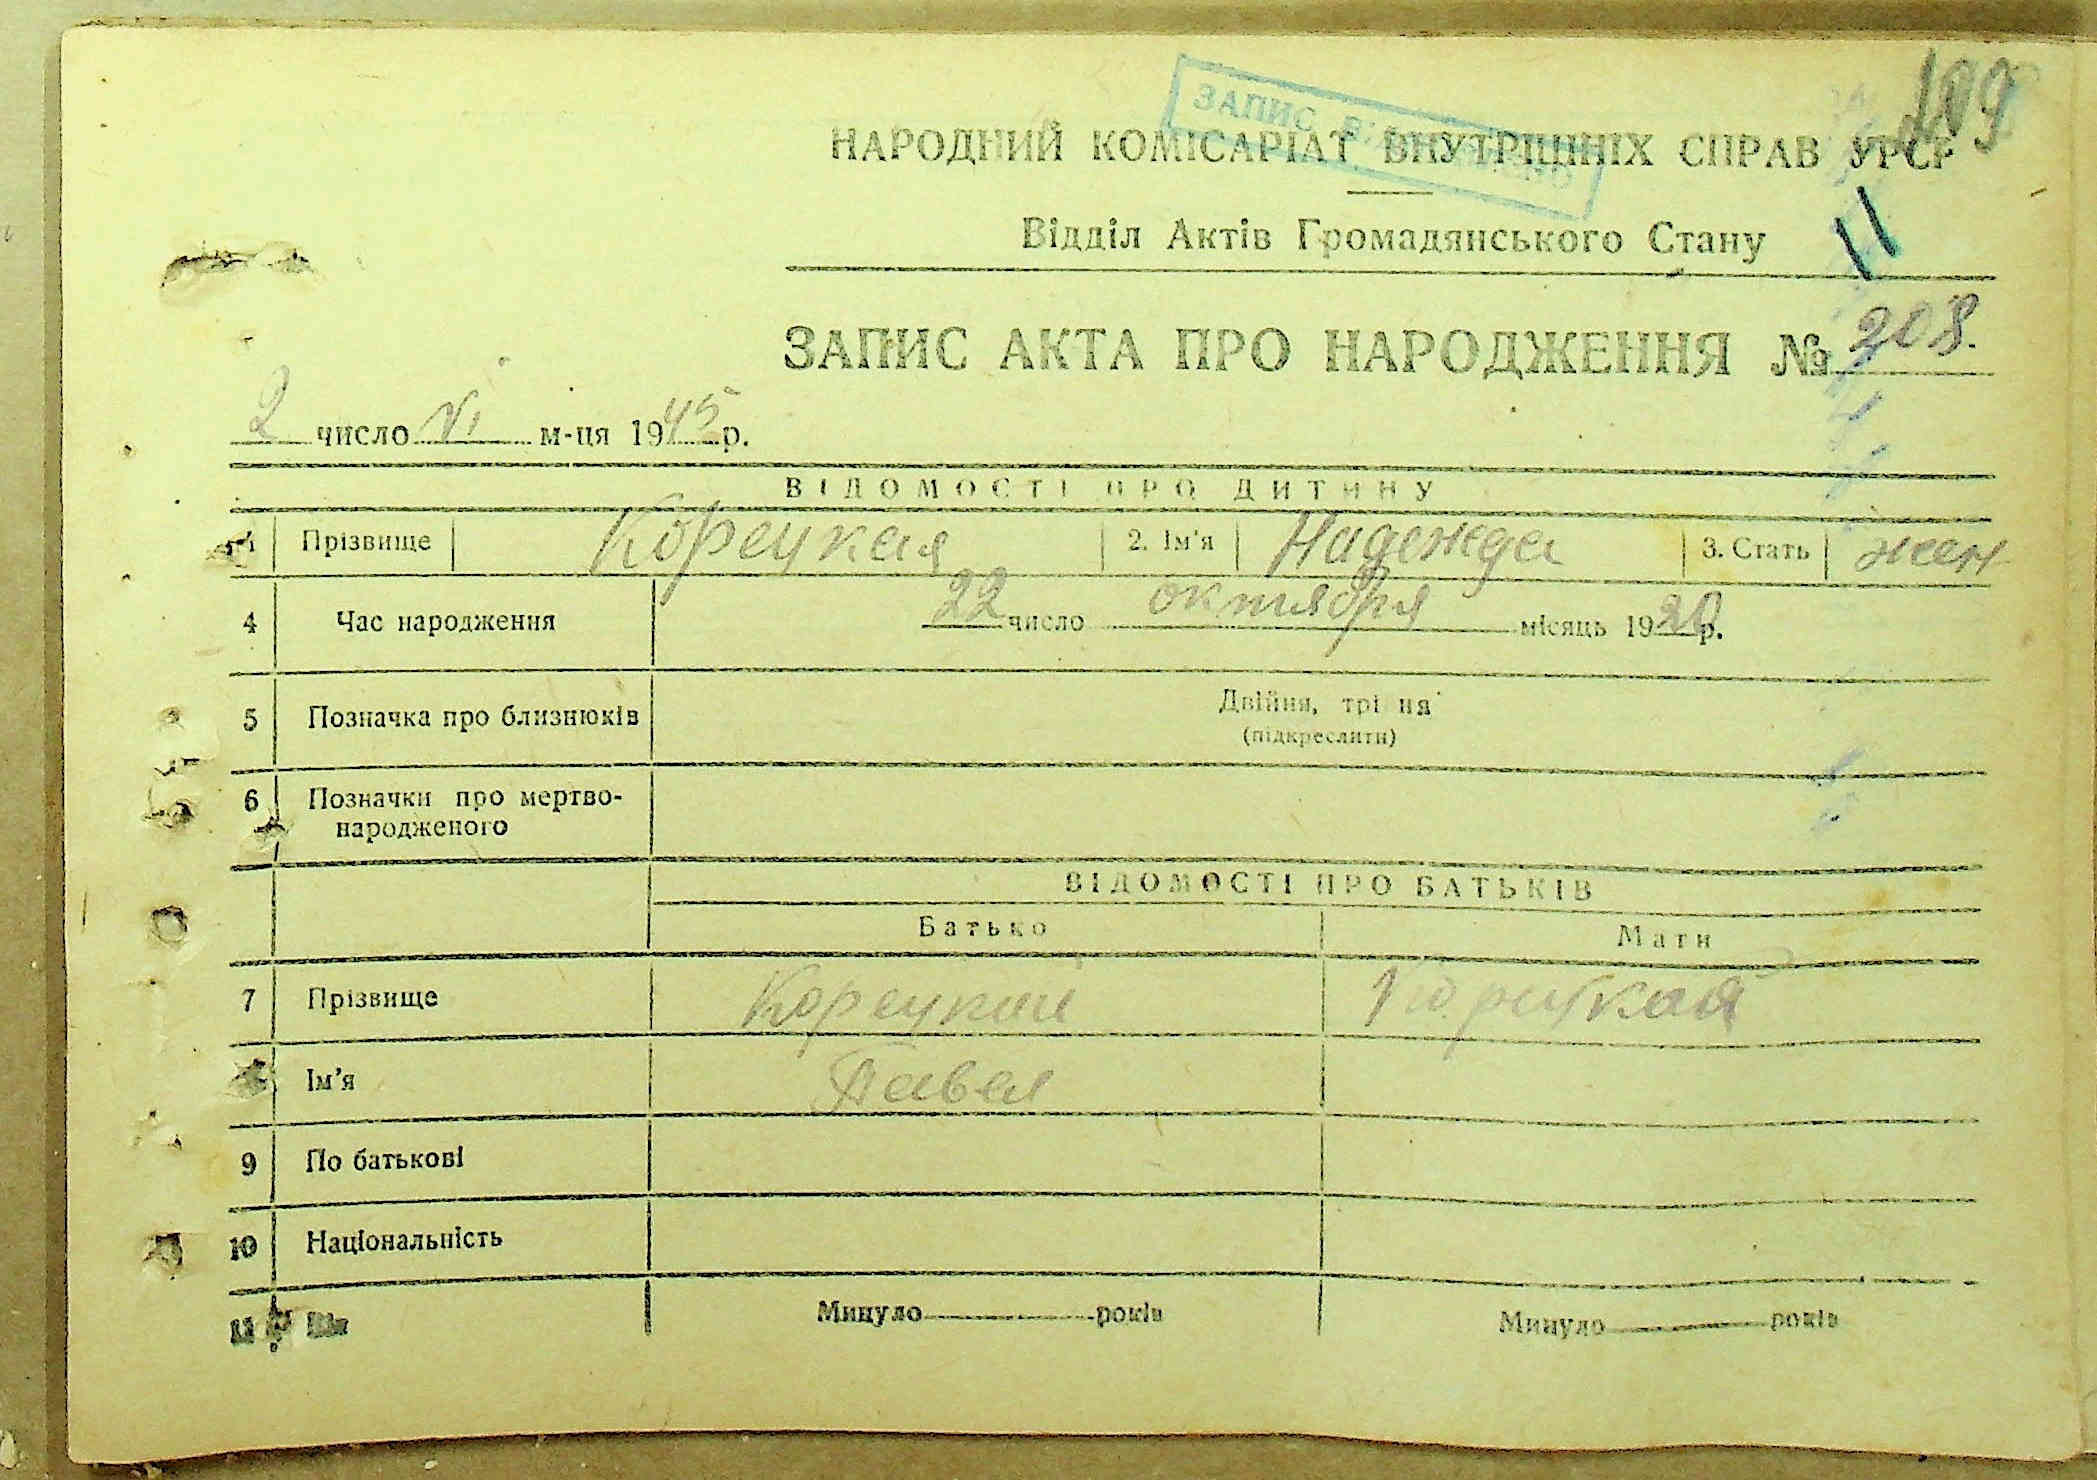 109
ЗАПИС ВІДНОВЛЕНО
НАРОДНИЙ КОМІСАРІАТ ВНУТРІШНІХ СПРАВ УРСР
Відділ Актів Громадянського Стану
11
ЗАПИС АКТА ПРО НАРОДЖЕННЯ № 208.
2 число VI м-ця 1945 р.
ВІДОМОСТІ ПРО ДИТИНУ
1 Прізвище Корецкая 2. Ім'я Надежда 3. Стать жен
4 Час народження 22 число октября місяць 1920 р.
5 Позначка про близнюків Двійня, трійня
(підкреслити)
6 Позначки про мертво-
народженого
ВІДОМОСТІ ПРО БАТЬКІВ
Батько Мати
7 Прізвище Корецкий Корецкая
Ім'я Павел
9 По батькові
10 Національність
11 Вік Минуло років Минуло років